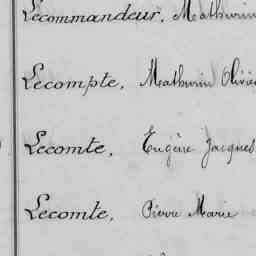 Lecommandeur, Mathurin
Lecompte, Mathurin Olivie
Lecomte, Eugène Jacques
Lecomte, Pierre Marie